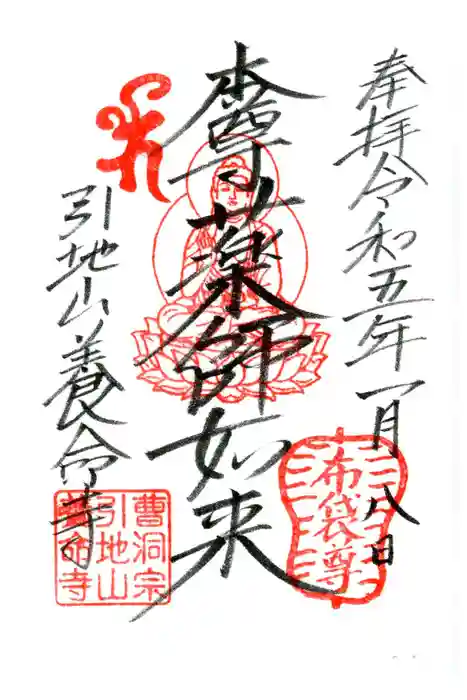 奉拝令和五年一月八日
布袋尊
本尊薬師如来
引地山養命寺
曹洞宗
引地山
養命寺